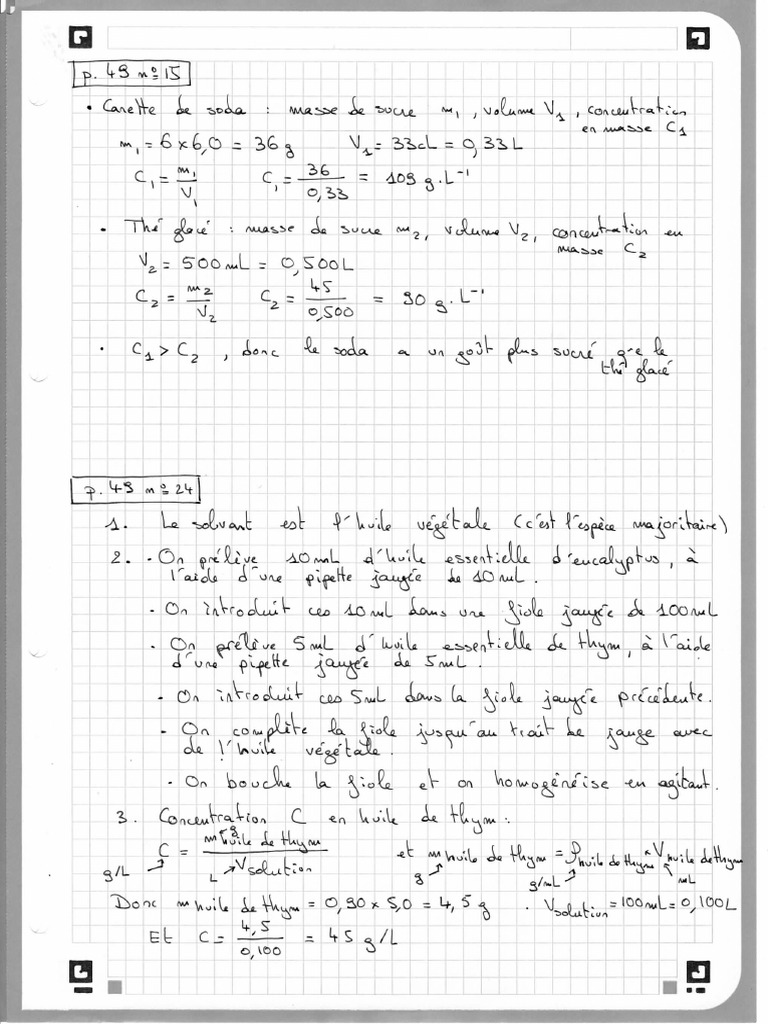 p. 49 n° 15
• Canette de soda : masse de sucre m₁, volume V₁, concentration
en masse C₁
m₁ = 6 × 6,0 = 36 g V₁ = 33cL = 0,33 L
C₁ = m₁/V₁ C₁ = 36/0,33 = 109 g.L⁻¹
• Thé glacé : masse de sucre m₂, volume V₂, concentration en
masse C₂
V₂ = 500 mL = 0,500L
C₂ = m₂/V₂ C₂ = 45/0,500 = 90 g.L⁻¹
• C₁ > C₂, donc le soda a un goût plus sucré que le
thé glacé
p. 49 n° 24
1. Le solvant est l'huile végétale (c'est l'espèce majoritaire)
2. - On prélève 10 mL d'huile essentielle d'eucalyptus, à
l'aide d'une pipette jaugée de 10 mL.
- On introduit ces 10 mL dans une fiole jaugée de 100 mL
- On prélève 5 mL d'huile essentielle de thym, à l'aide
d'une pipette jaugée de 5 mL.
- On introduit ces 5 mL dans la fiole jaugée précédente.
- On complète la fiole jusqu'au trait de jauge avec
de l'huile végétale.
- On bouche la fiole et on homogénéise en agitant.
3. Concentration C en huile de thym :
C = m huile de thym / V solution et m huile de thym = ρ huile de thym × V huile de thym
g/L g L g g/mL mL
Donc m huile de thym = 0,90 × 5,0 = 4,5 g . V solution = 100 mL = 0,100 L
Et C = 4,5/0,100 = 45 g/L